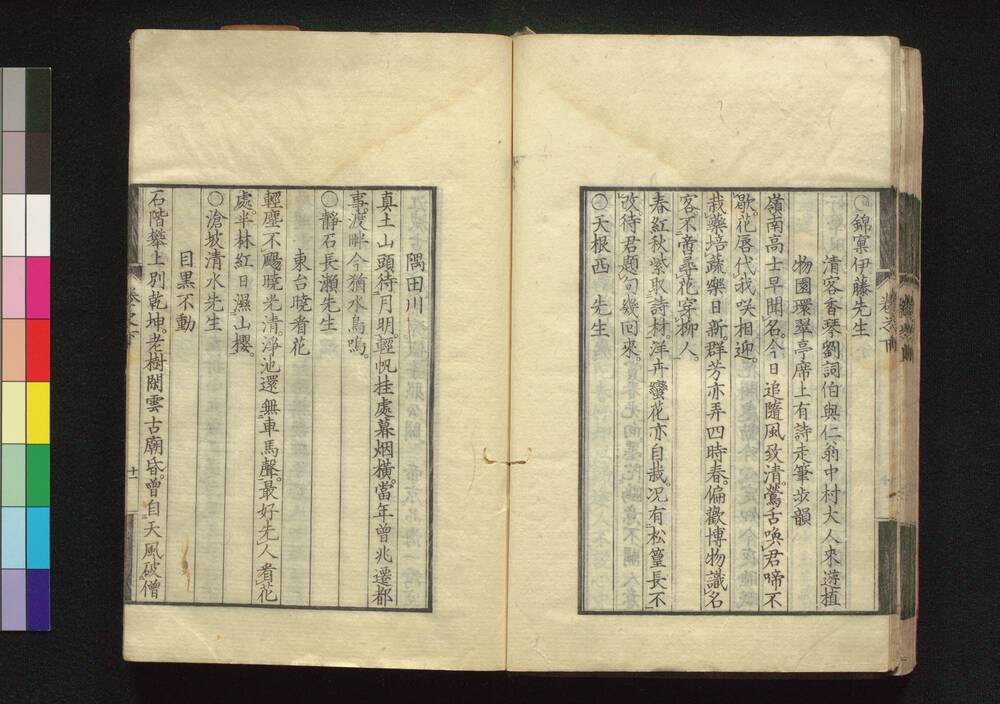 ○錦窠伊藤先生
清客香琴劉詞伯與仁翁中村大人來遊植
物園環翠亭席上有詩走筆步韻
嶺南高士早聞名。今日追隨風致清。鶯舌喚君啼不
歇。花唇代我咲相迎。
栽藥培蔬樂日新。群芳亦弄四時春。偏歡博物識名
客。不啻尋花穿柳人。
春紅秋紫取詩材。洋卉蠻花亦自栽。况有松篁長不
改。待君題句幾回來。
○天根西 先生
隅田川
真土山頭待月明。輕帆挂處暮烟橫。當年曾兆遷都
事。渡畔今猶水鳥鳴。
○靜石長瀬先生
東台曉看花
輕塵不颺曉光清。淨池還無車馬聲。最好先人看花
處。半林紅日濕山櫻。
○滄坡清水先生
目黒不動
石階攀上別乾坤。老樹閑雲古廟昏。曾自天風破僧
卷之下
十一